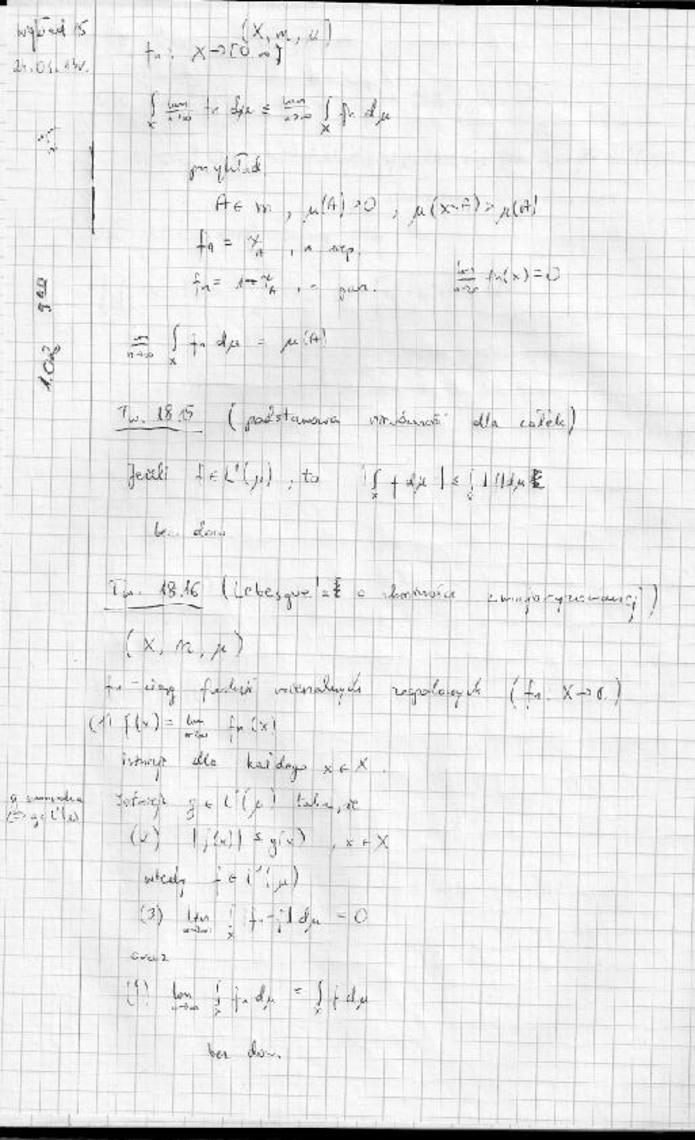 Wykład 15
(X, m, μ)
fn : X → [0, ∞]
∫_X lim_{n→∞} fn dμ ≤ lim_{n→∞} ∫_X fn dμ
przykład
A ∈ m , μ(A) > 0 , μ(X∖A) > μ(A)
fn = χ_A , n np.
fn = 1 - χ_A , n parz.
lim_{n→∞} fn(x) = 0
lim_{n→∞} ∫_X fn dμ = μ(A)
Tw. 18.15 (podstawowa nierówność dla całek)
Jeżeli f ∈ L¹(μ) , to |∫_X f dμ| ≤ ∫_X |f| dμ
bez dow.
Tw. 18.16 (Lebesgue'a o zbieżności zmajoryzowanej)
(X, m, μ)
fn - ciąg funkcji mierzalnych zespolonych (fn : X → C)
(1) f(x) = lim_{n→∞} fn(x)
istnieje dla każdego x ∈ X.
g sumowalna
⇔ g ∈ L¹(μ)
Istnieje g ∈ L¹(μ) taka, że
(2) |f(x)| ≤ g(x) , x ∈ X
wtedy f ∈ L¹(μ)
(3) lim_{n→∞} ∫_X |fn - f| dμ = 0
oraz
(4) lim_{n→∞} ∫_X fn dμ = ∫_X f dμ
bez dow.